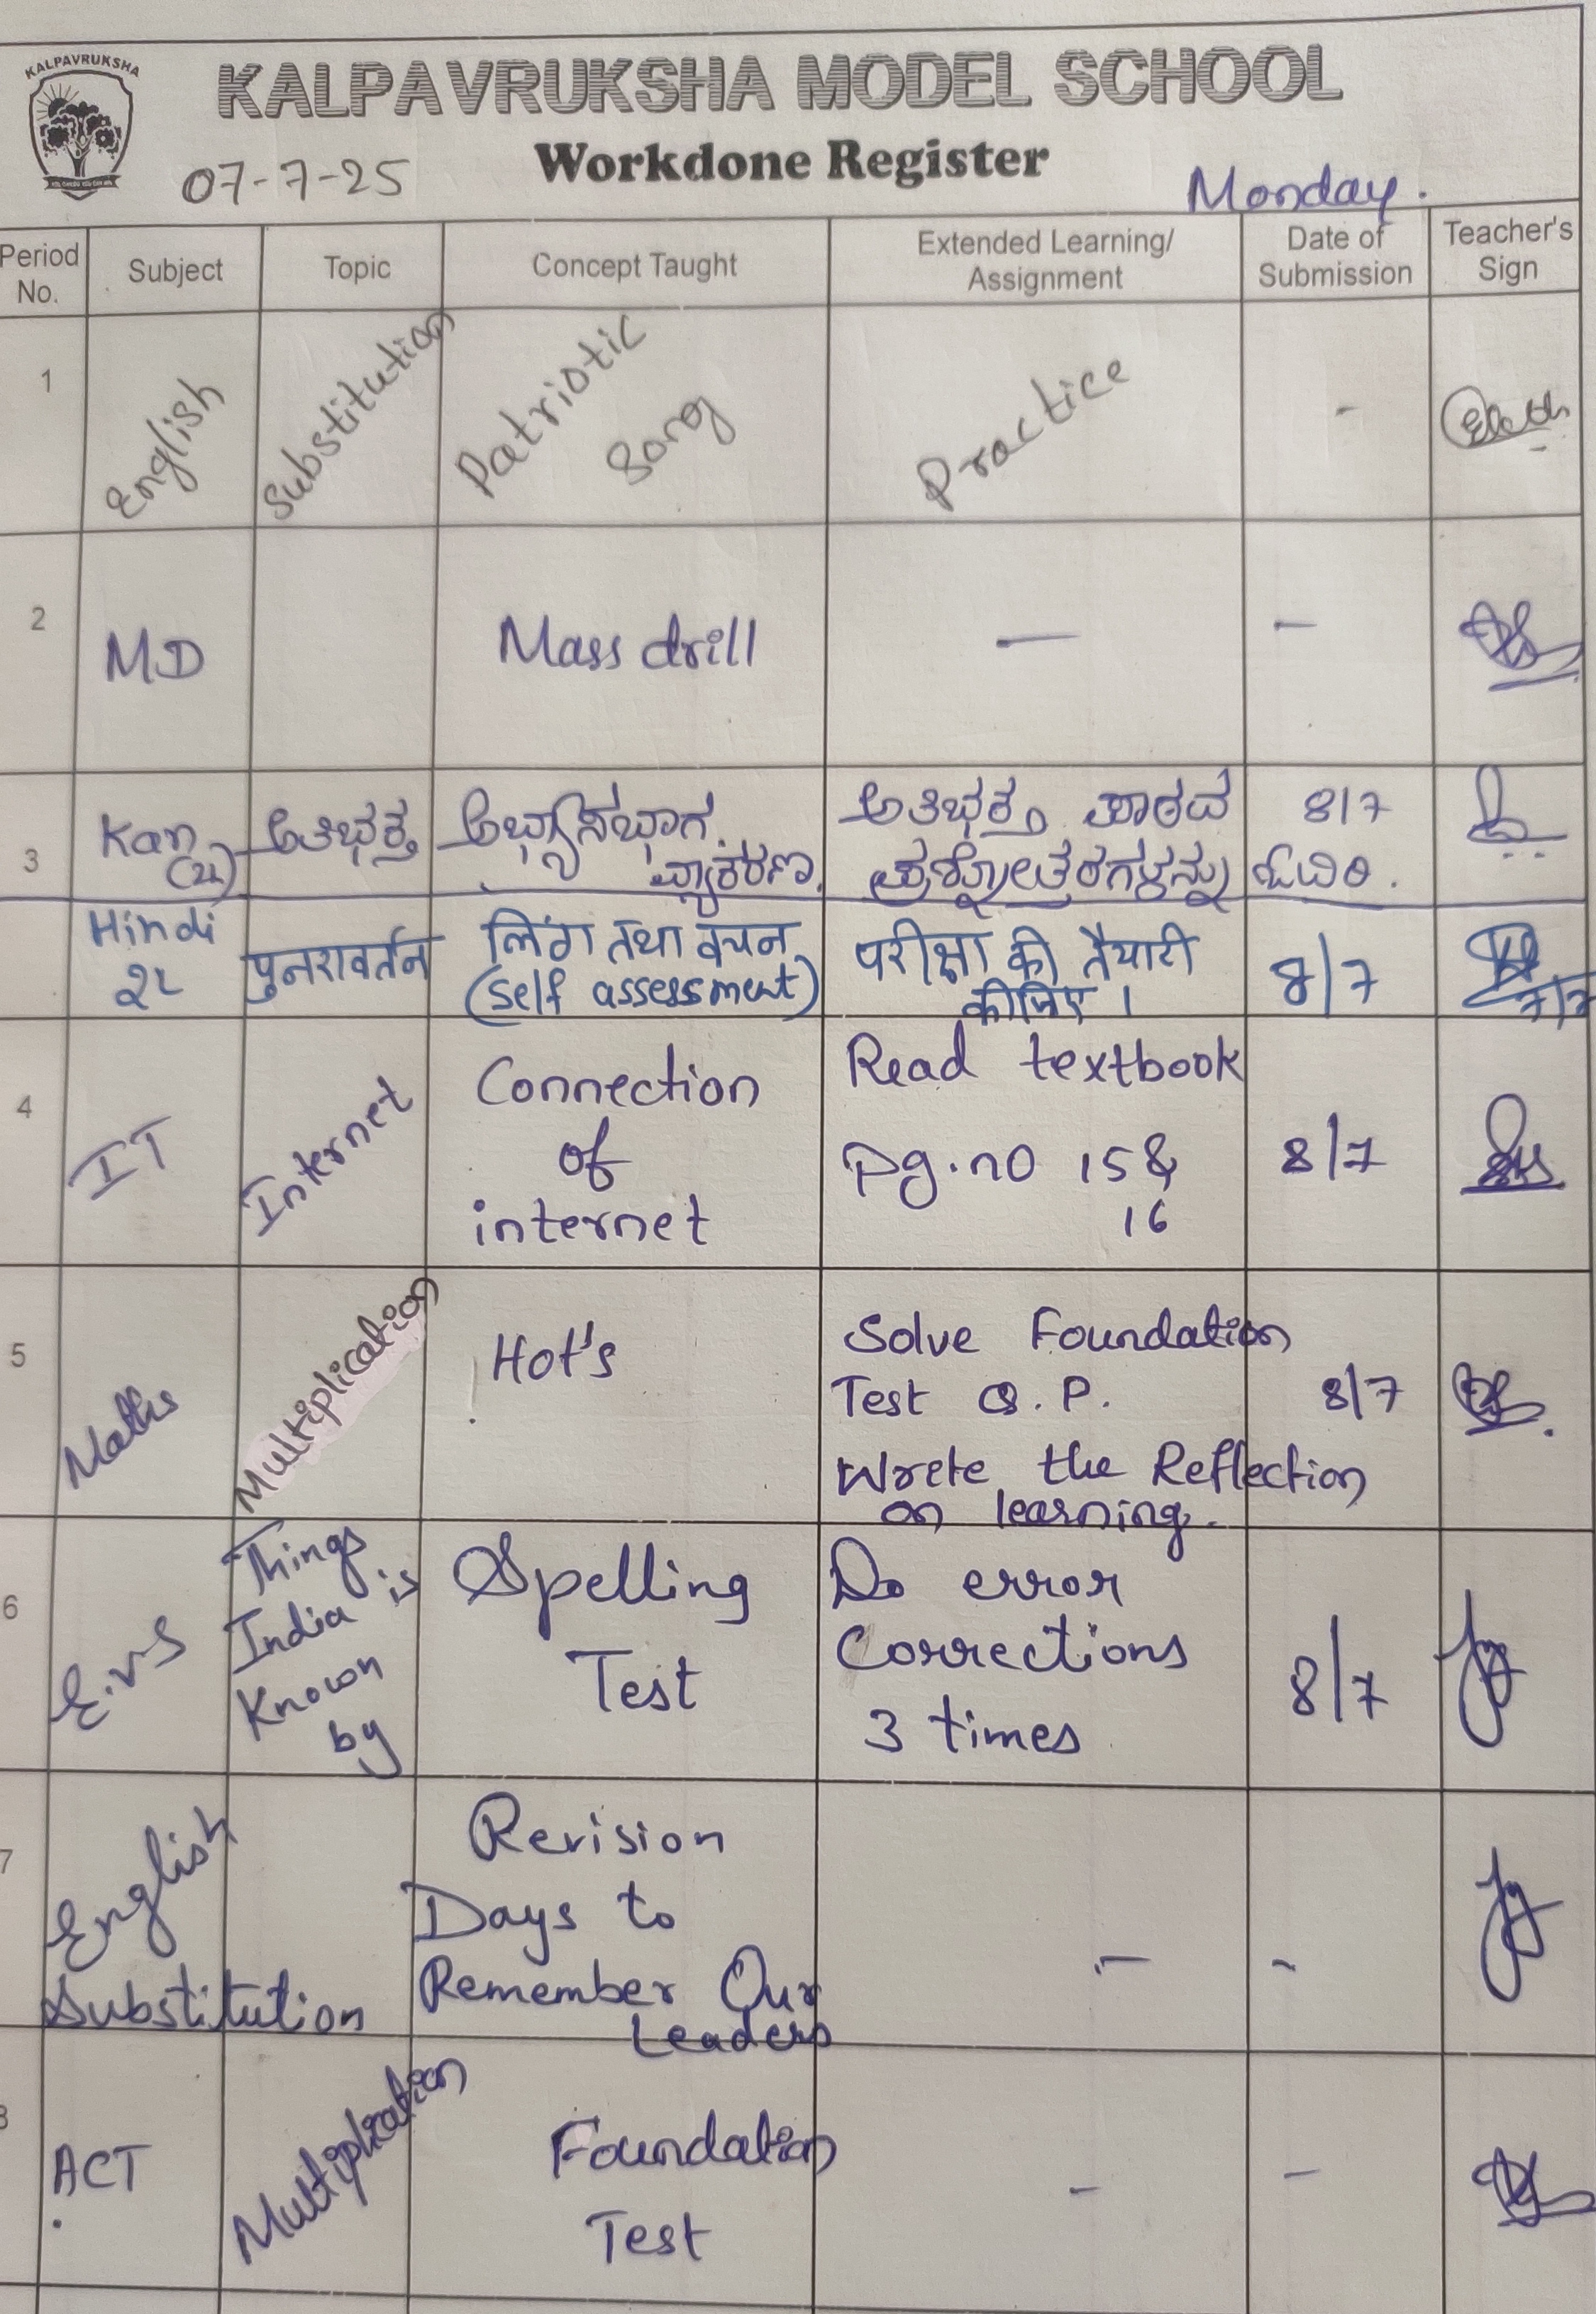 KALPAVRUKSHA
KALPAVRUKSHA MODEL SCHOOL
Workdone Register
07-7-25
Monday.
Period No. Subject Topic Concept Taught Extended Learning/ Assignment Date of Submission Teacher's Sign
1 English Substitution Patriotic Song Practice -
2 MD Mass drill — —
3 Kan (2L) ಅತಿಭಕ್ತ ಅಭ್ಯಾಸಭಾಗ. ವ್ಯಾಕರಣ. ಅತಿಭಕ್ತ ಪಾಠದ ಪ್ರಶ್ನೋತ್ತರಗಳನ್ನು ಓದಿರಿ. 8/7
Hindi 2L पुनरावर्तन लिंग तथा वचन (self assessment) परीक्षा की तैयारी कीजिए । 8/7 7/7
4 IT Internet Connection of internet Read textbook Pg.no 15 & 16 8/7
5 Maths Multiplication Hot's Solve Foundation Test Q.P. Write the Reflection on learning. 8/7
6 E.VS Things India is Known by Spelling Test Do error Corrections 3 times 8/7
7 English Substitution Revision Days to Remember Our Leaders - -
8 ACT Multiplication Foundation Test - -